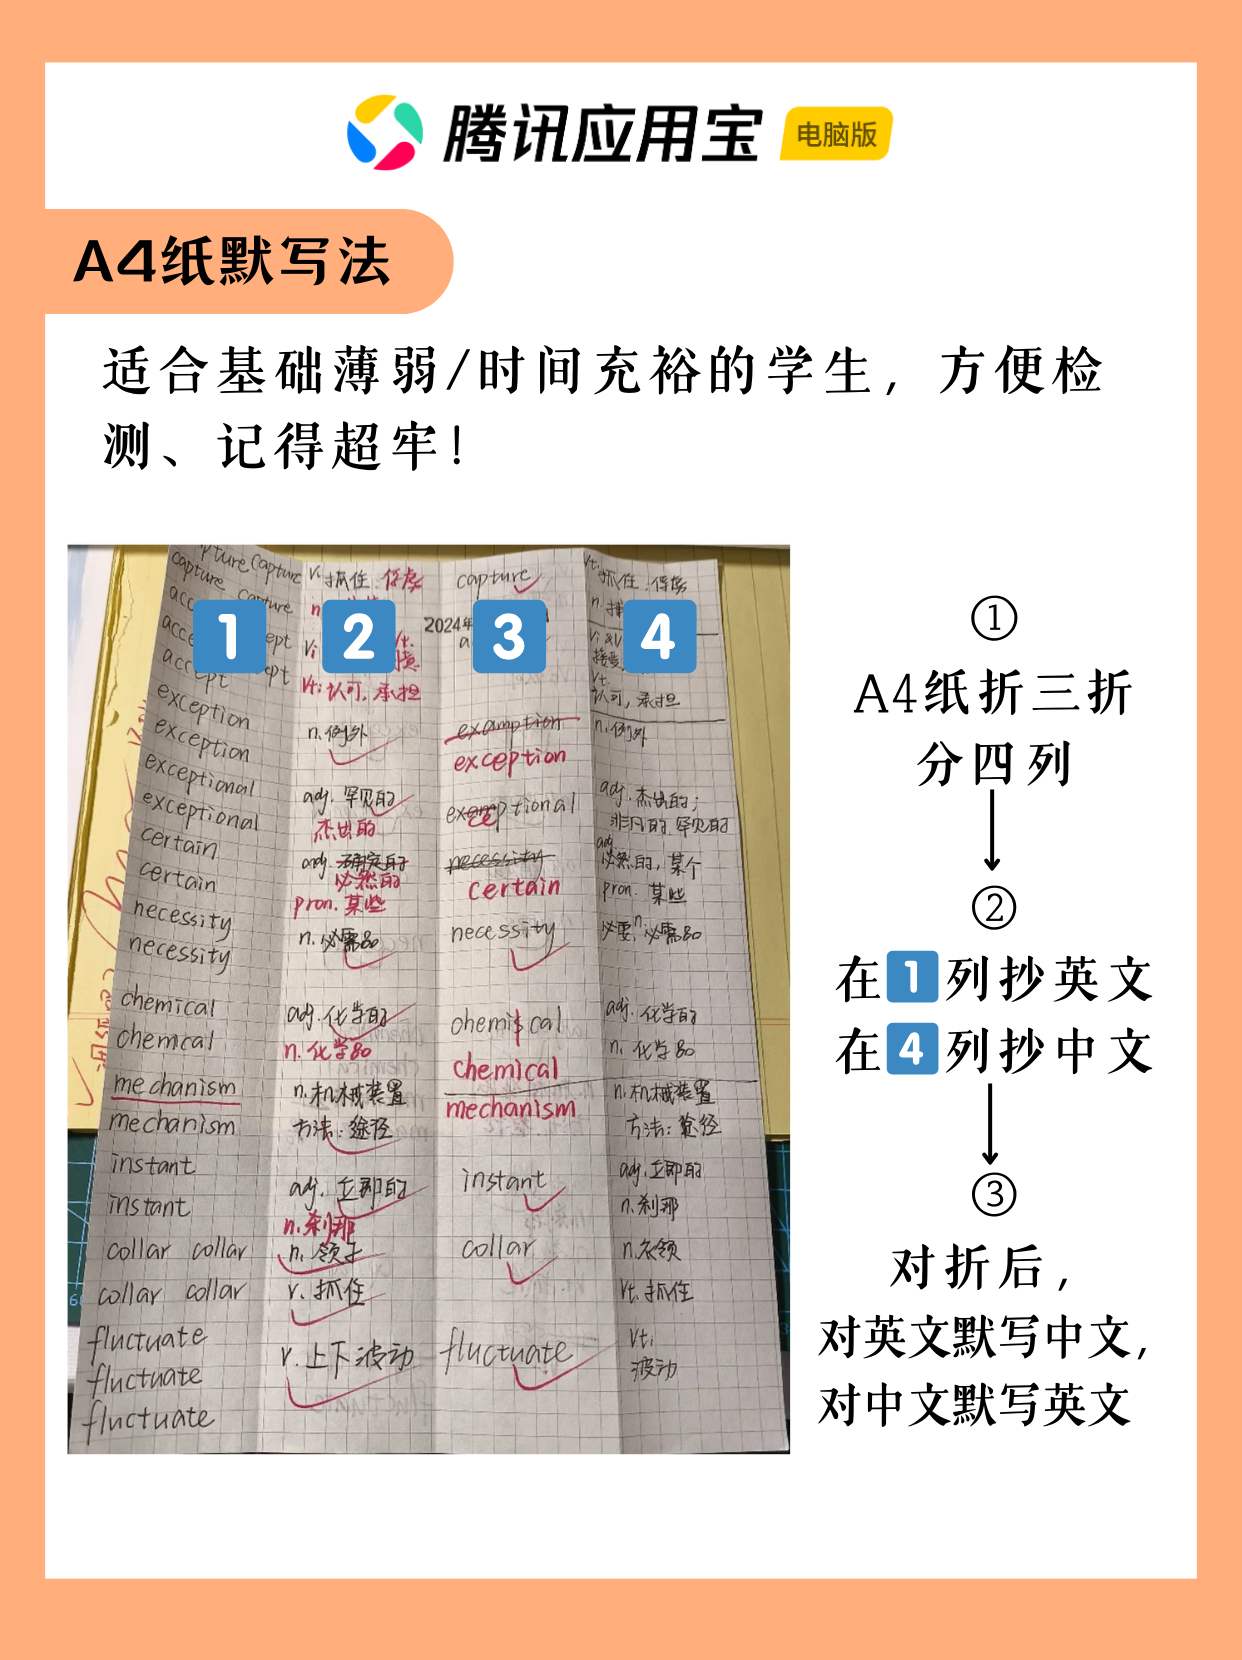 腾讯应用宝 电脑版
A4纸默写法
适合基础薄弱/时间充裕的学生，方便检
测、记得超牢！
①
A4纸折三折
分四列
②
在1列抄英文
在4列抄中文
③
对折后，
对英文默写中文，
对中文默写英文
1 2 3 4
capture
capture capture
exception
exception
exceptional
exceptional
certain
certain
necessity
necessity
chemical
chemical
mechanism
mechanism
instant
instant
collar collar
collar collar
fluctuate
fluctuate
fluctuate
v. 抓住 俘虏
vt: 认可, 承担
n. 例外
adj. 罕见的
杰出的
adj. 确定的
必然的
pron. 某些
n. 必需品
adj. 化学的
n. 化学品
n. 机械装置
方法; 途径
adj. 立即的
n. 刹那
n. 领子
v. 抓住
v. 上下波动
capture
2024年
examption
exception
certain
necessity
chemical
mechanism
instant
collar
fluctuate
vt. 抓住, 俘虏
vt.
认可, 承担
n. 例外
adj. 杰出的;
非凡的, 罕见的
adj.
必然的, 某个
pron. 某些
n.
必要, 必需品
adj. 化学的
n. 化学品
n. 机械装置
方法; 途径
adj. 立即的
n. 刹那
n. 衣领
vt. 抓住
vt:
波动